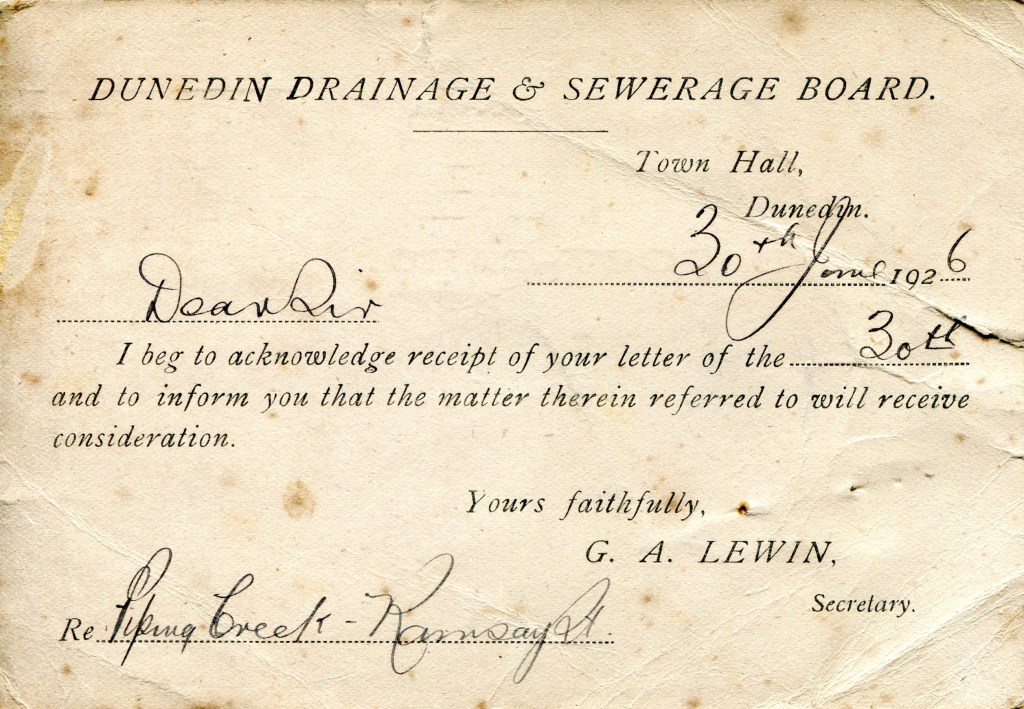 DUNEDIN DRAINAGE & SEWERAGE BOARD.
Town Hall,
Dunedin.
30th June 1926
Dear Sir
I beg to acknowledge receipt of your letter of the 30th
and to inform you that the matter therein referred to will receive
consideration.
Yours faithfully,
G. A. LEWIN,
Secretary.
Re Piping Creek - Ramsay St.